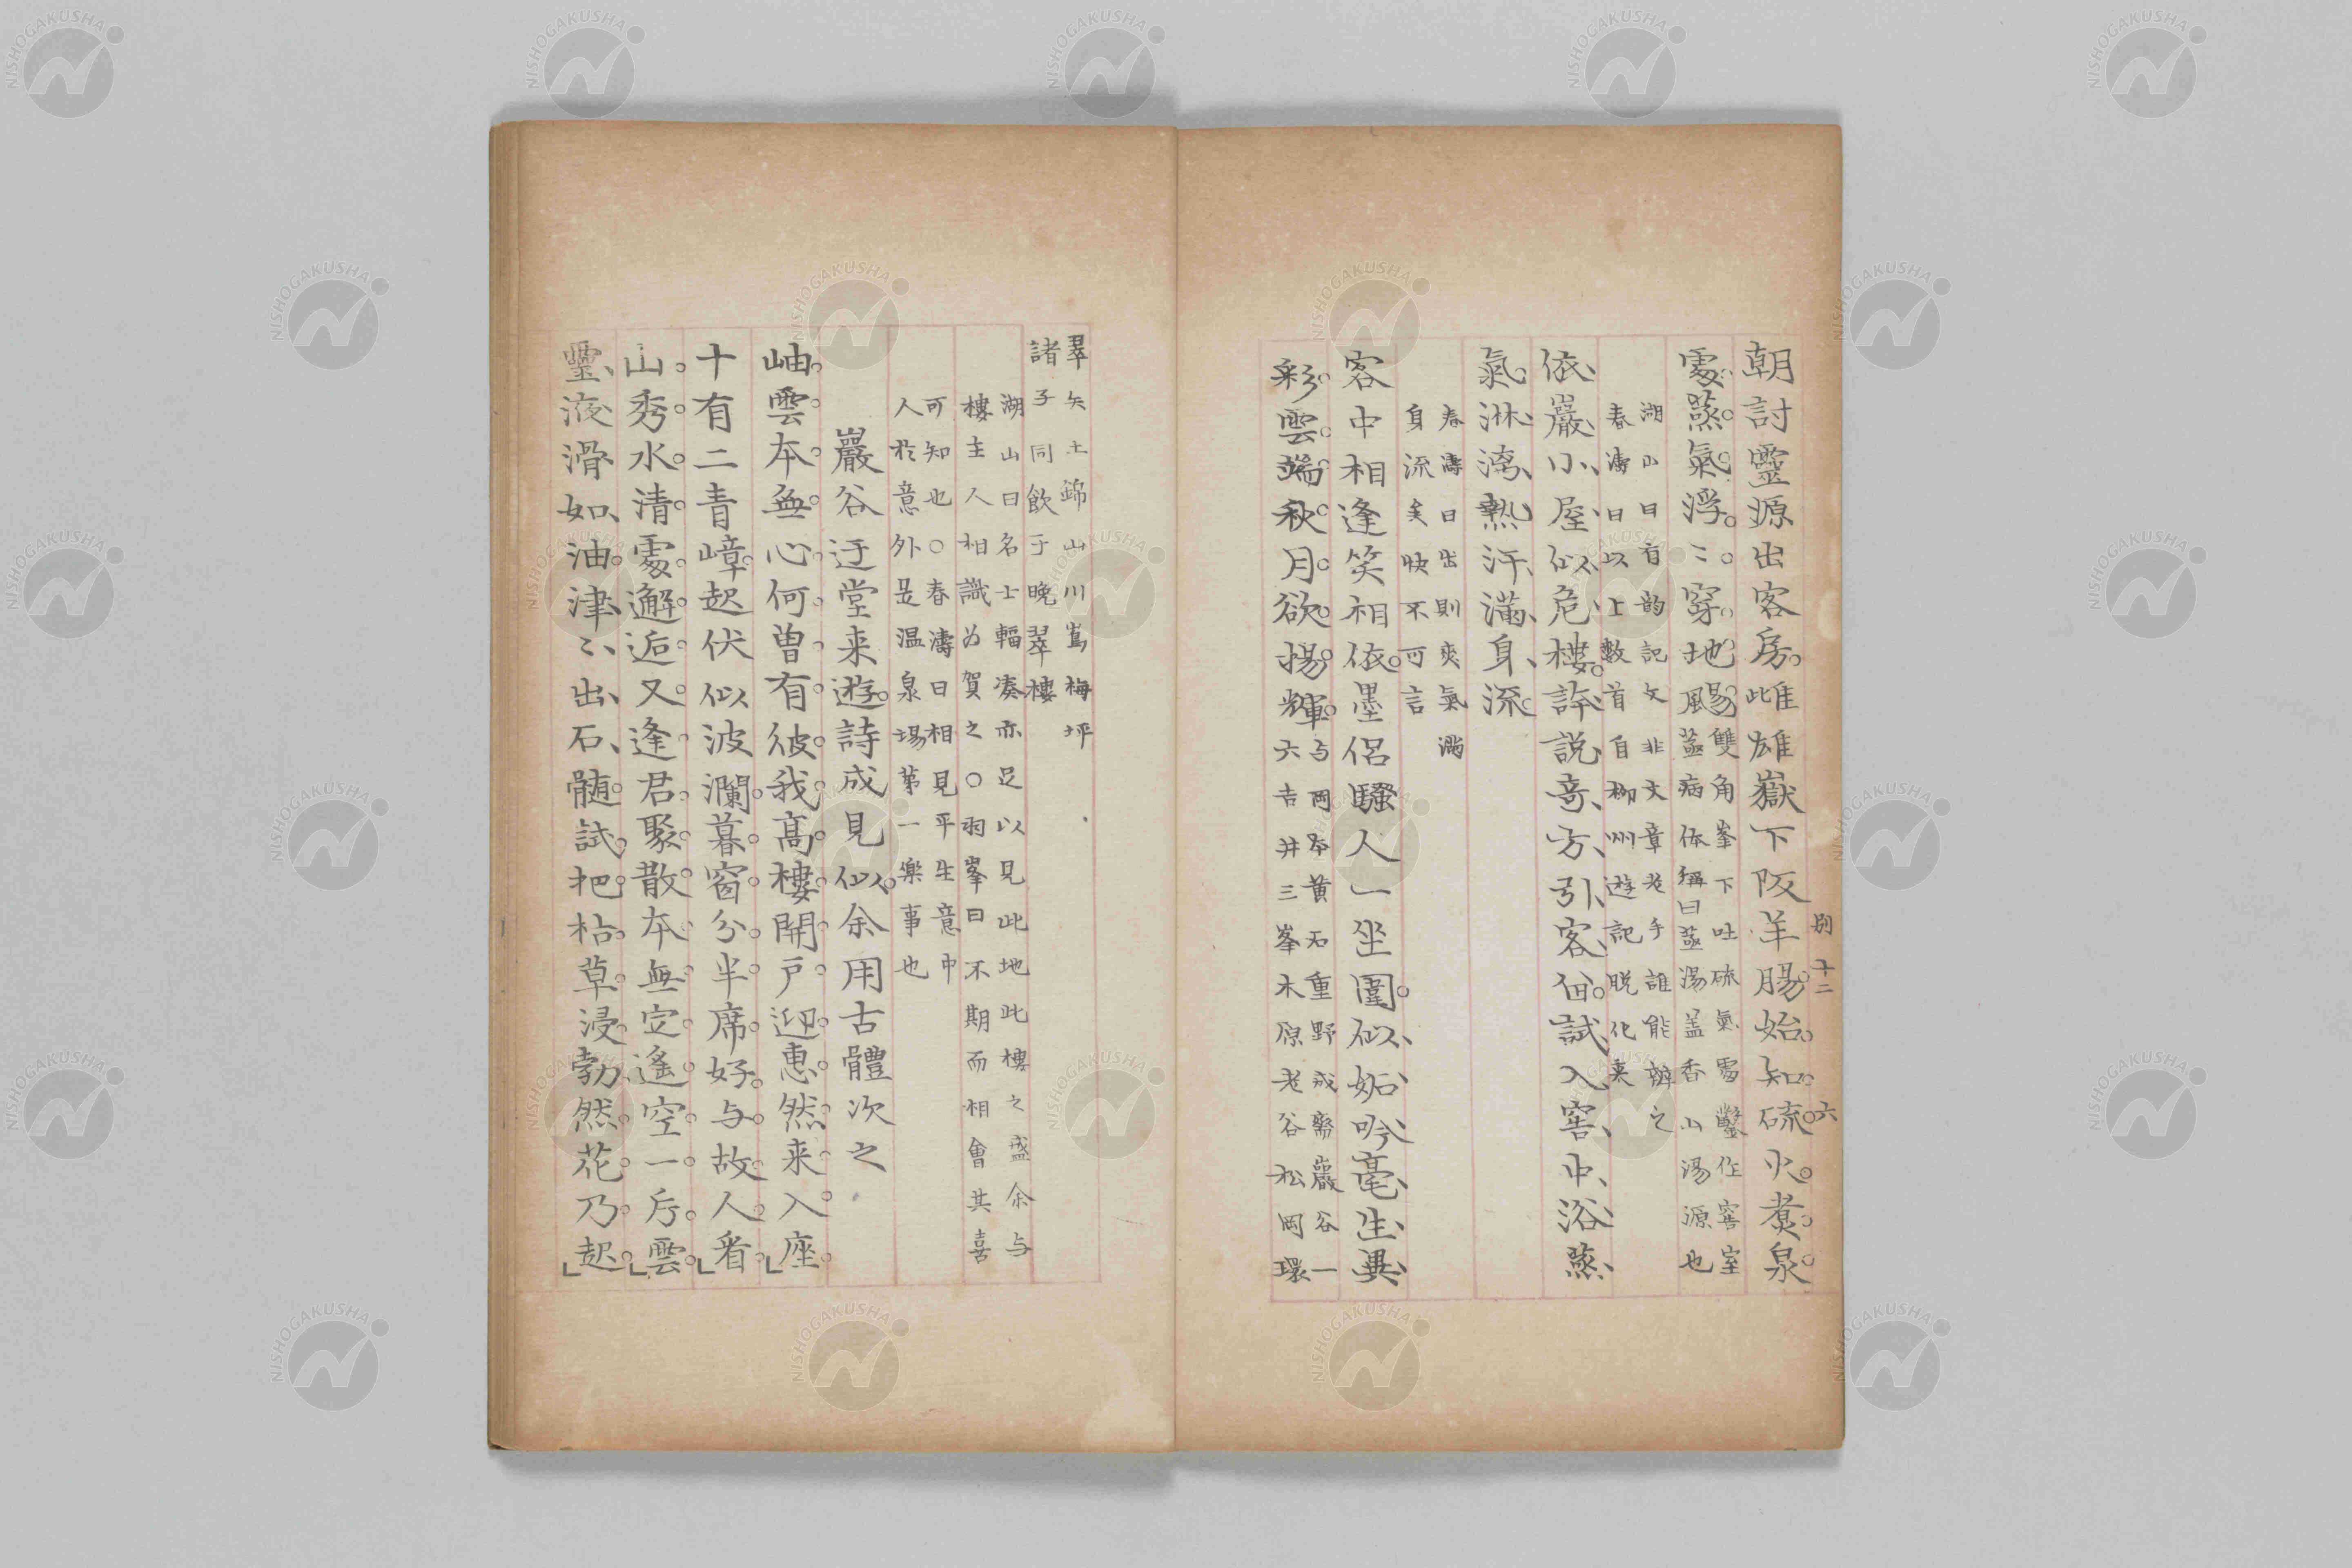 別十二 六
朝討靈源出客房。雌雄嶽下阪羊腸。始知硫火煮泉
處。蒸氣浮〻穿地颺
雙角峯下吐硫氣處鑿作窖室
蒸病体稱曰蒸湯盖香山湯源也
湖山曰有韵記文非文章老手誰能辦之
春濤曰以上數首自柳州遊記脱化来
依巖小屋似危樓。許説竒方引客留。試入窖中浴蒸
氣。淋漓熱汗滿身流
春濤曰出則爽氣満
身流矣快不可言
客中相逢笑相依。墨侶騒人一坐圍。似妬吟毫生異
彩。雲端秋月欲揚輝。
与岡本黄石重野成齋巖谷一
六吉井三峯木原老谷松岡環
翠矢土錦山川嶌梅坪
諸子同飲于晩翠樓
湖山曰名士輻湊亦足以見此地此樓之盛余与
樓主人相識為賀之〇羽峯曰不期而相會其喜
可知也〇春濤曰相見平生意中
人於意外是温泉場第一樂事也
巖谷迂堂来遊。詩成見似。余用古體次之
岫雲本無心何曽有彼我。髙樓開戸迎惠然来入座。
十有二青嶂起伏似波瀾。暮窗分半席好与故人看。
山秀水清處邂逅又逢君。聚散本無定遙空一片雲。
靈液滑如油津〻出石髄。試把枯草浸勃然花乃起。
NISHOGAKUSHA